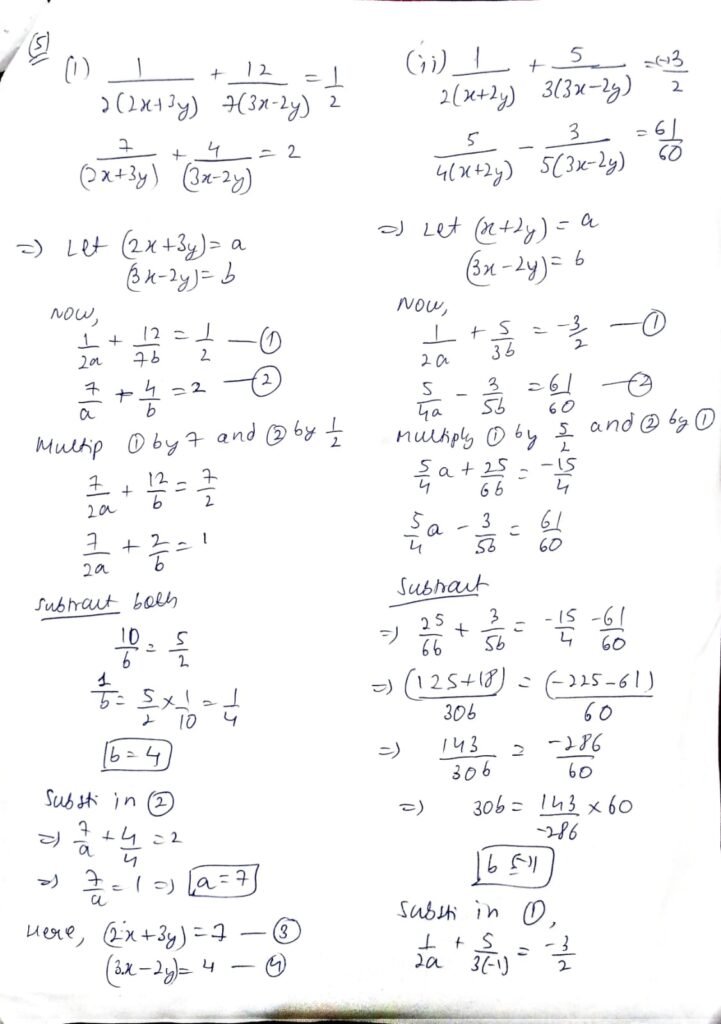 (5)
(i) 1/2(2x+3y) + 12/7(3x-2y) = 1/2
7/(2x+3y) + 4/(3x-2y) = 2
=) Let (2x+3y) = a
(3x-2y) = b
NOW,
1/2a + 12/7b = 1/2 —①
7/a + 4/b = 2 —②
Multip ① by 7 and ② by 1/2
7/2a + 12/b = 7/2
7/2a + 2/b = 1
Subtract both
10/b = 5/2
1/b = 5/2 × 1/10 = 1/4
b = 4
Substi in ②
=) 7/a + 4/4 = 2
=) 7/a = 1 =) a = 7
Here, (2x+3y) = 7 —③
(3x-2y) = 4 —④
(ii) 1/2(x+2y) + 5/3(3x-2y) = -3/2
5/4(x+2y) - 3/5(3x-2y) = 61/60
=) Let (x+2y) = a
(3x-2y) = b
NOW,
1/2a + 5/3b = -3/2 —①
5/4a - 3/5b = 61/60 —②
multiply ① by 5/2 and ② by ①
5/4 a + 25/6b = -15/4
5/4 a - 3/5b = 61/60
Subtract
=) 25/6b + 3/5b = -15/4 -61/60
=) (125+18)/30b = (-225-61)/60
=) 143/30b = -286/60
=) 30b = 143/-286 × 60
b = -1
Substi in ①,
1/2a + 5/3(-1) = -3/2